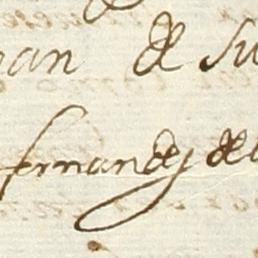 an de su
fernandez de